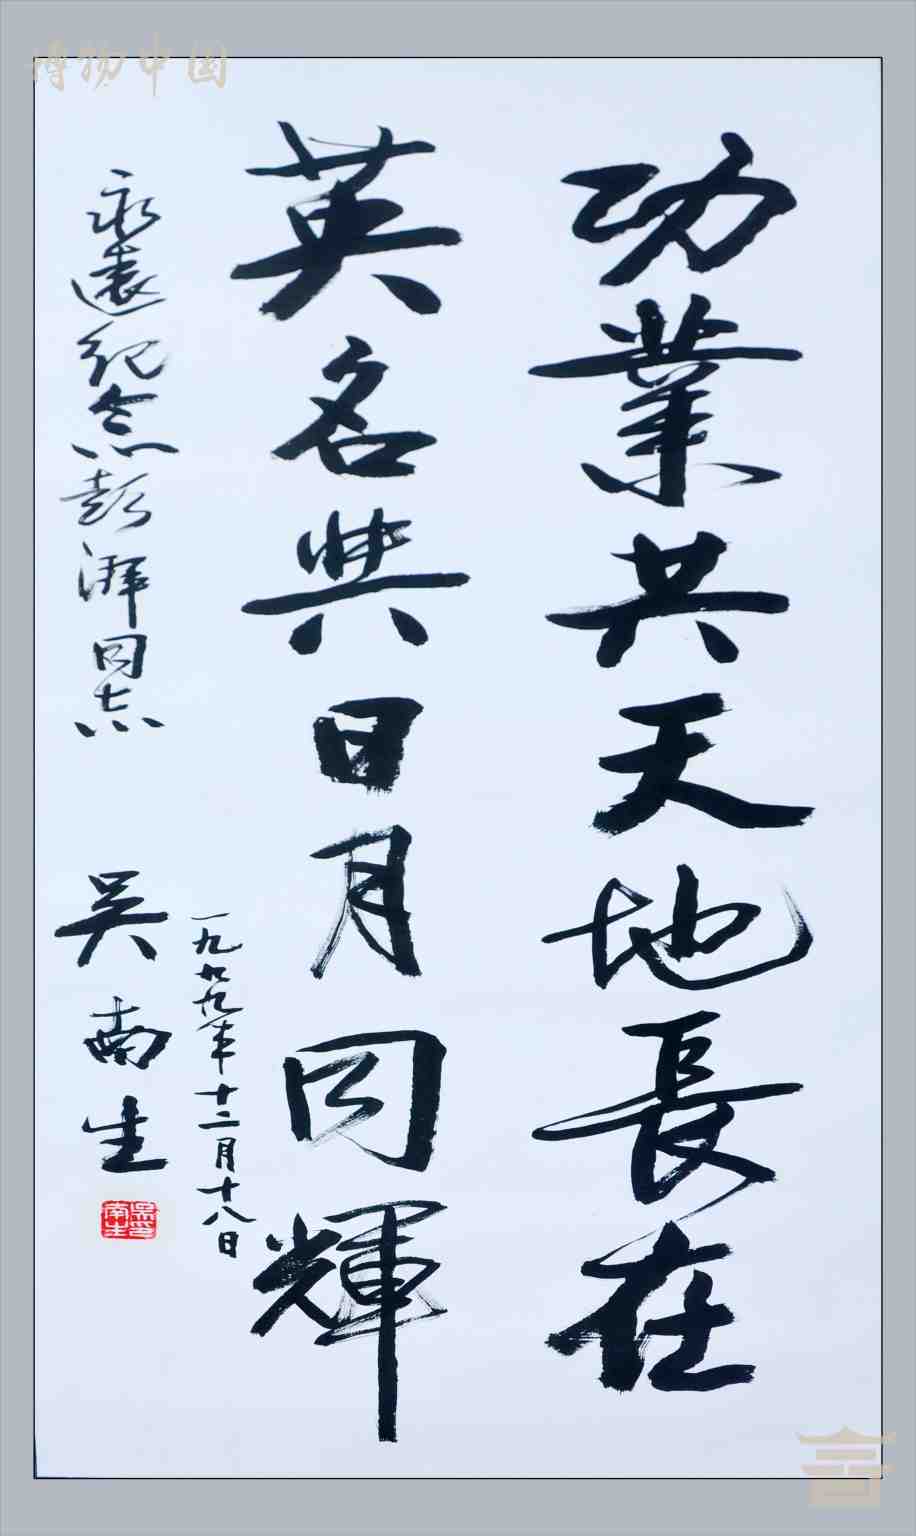 功業共天地長在
英名與日月同輝
永遠纪念彭湃同志
一九九九年十二月十八日
吴南生
吴印南生
博物中国